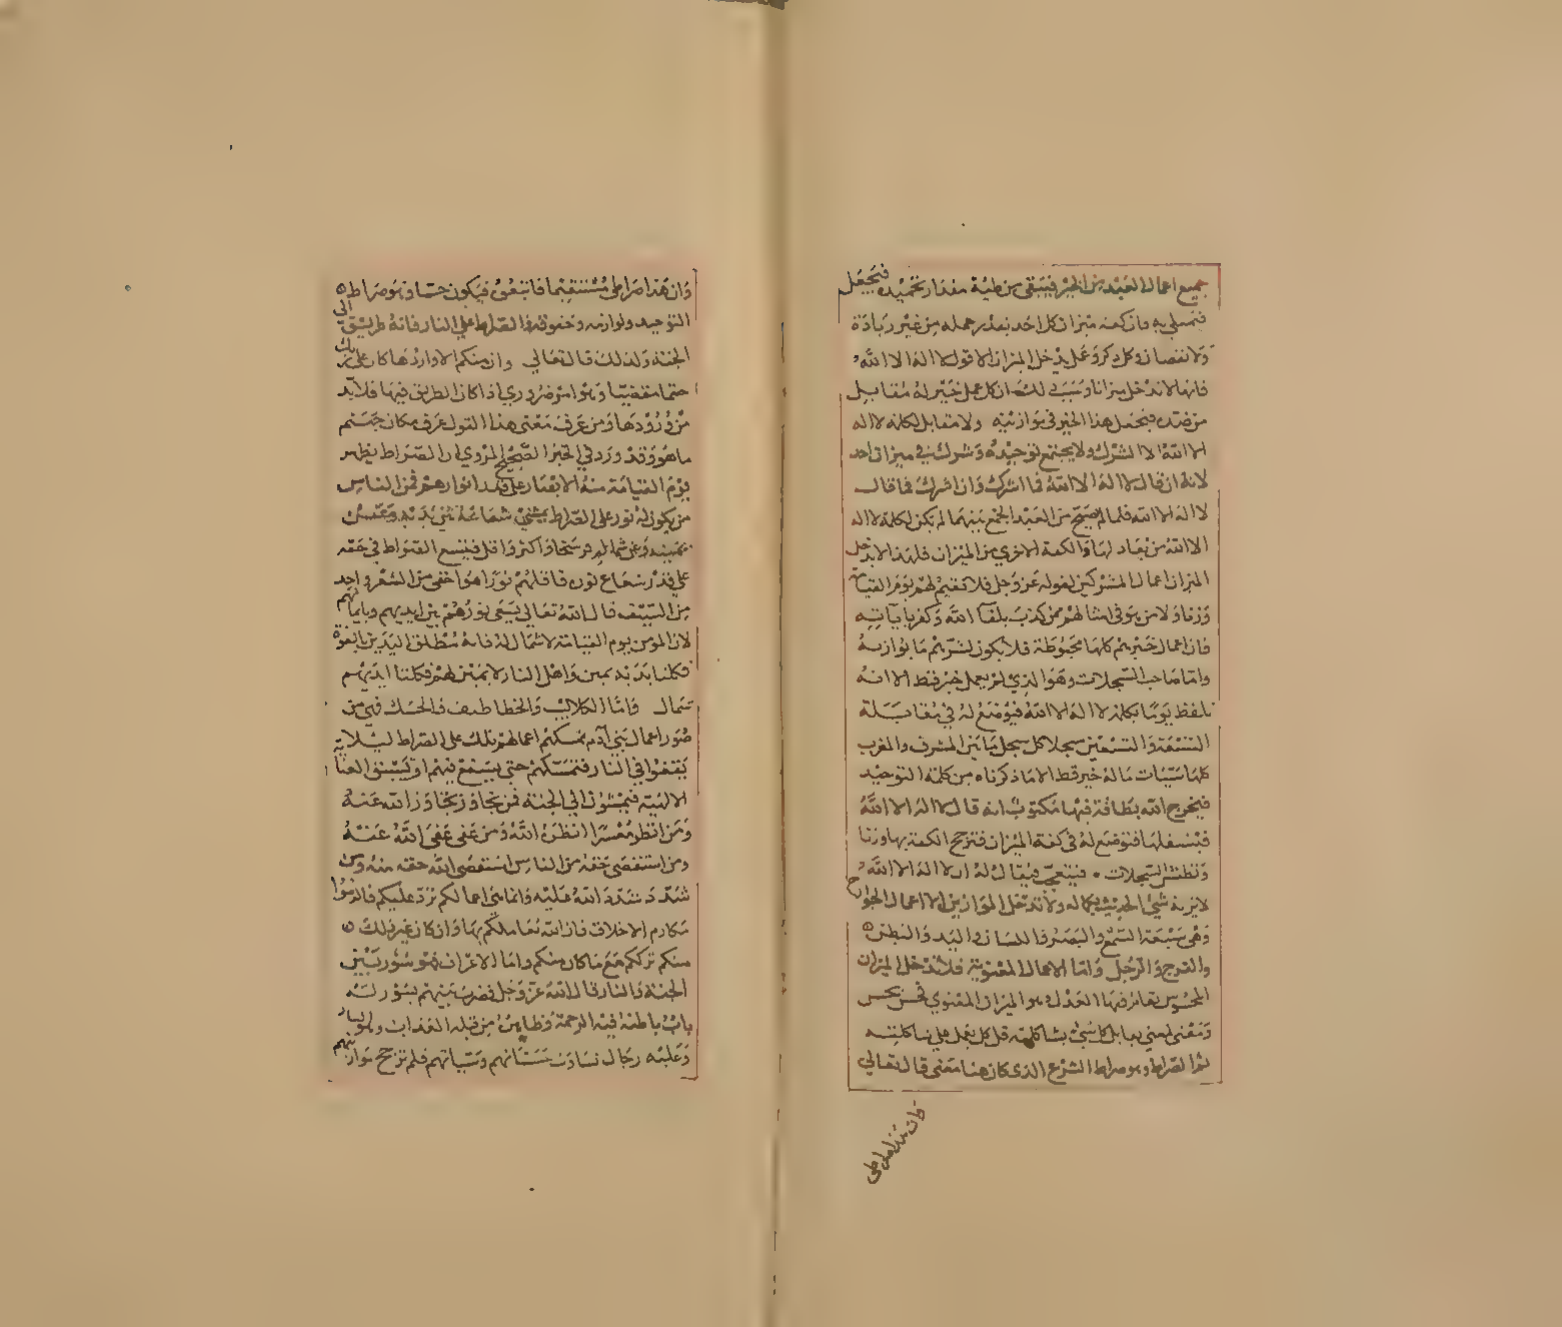 جميع اعمال العبد من الخير فيبقى من طيه مقدار تحميده فيجعل
فتمتلي به فان كفة ميزان كل احد بقدر عمله من غير زيادة
ولا نقصان وكل ذكر وعمل يدخل الميزان الا قول لا اله الا الله
فانها لا تدخل ميزانا وسبب ذلك ان كل عمل خير له مقابل
من ضده فيجعل هذا الخير في موازنته ولا مقابل لكلمة لا اله
الا الله الا الشرك ولا يجتمع توحيد وشرك في ميزان احد
لانه ان قال لا اله الا الله فما اشرك وان اشرك فما قال
لا اله الا الله فلما لم يصح من العبد الجمع بينهما لم يكن لكلمة لا اله
الا الله من يعادلها في الكفة الاخري من الميزان فلهذا لا يدخل
الميزان اعمال المشركين لقوله عز وجل فلا نقيم لهم يوم القيامة
وزنا ولا من هو في امثالهم ممن كذب بلقا الله وكفر باياته
فان اعمال خيرهم كلها محبوطة فلا يكون لشرهم ما يوازنه
واما صاحب السجلات وهو الذي لم يعمل خير قط الا انه
تلفظ يوما بكلمة لا اله الا الله فيوضع له في مقابلة
التسعة والتسعين سجلا كل سجل ما بين المشرق والمغرب
كلها سيئات ماله خير قط الا ما ذكرناه من كلمة التوحيد
فيخرج الله بطاقة فيها مكتوب انه قال لا اله الا الله
فيستقلها فتوضع له في كفة الميزان فترجح الكفة بها وزنا
وتطيش السجلات فيتعجب فيقال له ان لا اله الا الله
لا يزنه شي الحديث بكماله ولا تدخل الموازين الا اعمال الجوارح
وهي سبعة السمع والبصر واللسان واليد والبطن
والفرج والرجل واما الاعمال المعنوية فلا تدخل الميزان
المحسوس يقام فيها العدل وهو الميزان المعنوي فحس بحس
ومعنى لمعنى يقابل كل شي بشاكلته قل كل يعمل على شاكلته
ثم الصراط وهو صراط الشرع الذي كان هنا معنى قال تعالي
وان هذا صراطي
وان هذا صراطي مستقيما فاتبعوه فيكون حسا وهو صراط
التوحيد ولوازمه وحقوقه والصراط على النار فانه طريق الى
الجنة ولذلك قال تعالي وان منكم الا واردها كان على ربك
حتما مقضيا وهو امر ضروري اذا كان الطريق فيها فلا بد
من ورودها ومن عرف معنى هذا القول عرف مكان جهنم
ما هو وقد ورد في الخبر الصحيح المروي ان الصراط يظهر
يوم القيامة منه الابصار على قدر انوارهم فمن الناس
من يكون له نور على الصراط يمشي شعاعه بين يديه وعن
يمينه وعن شماله فرسخا واكثر واقل فيتسع الصراط في حقه
على قدر شعاع نوره فاقلهم نورا هو اخفى من الشعر واحد
من السيف قال الله تعالي يسعى نورهم بين ايديهم وبايمانهم
لان المومن يوم القيامة لا شمال له فانه مطلق اليدين بالقوة
فكلتا يديه يمين واهل النار لا يمين لهم فكلتا ايديهم
شمال واما الكلاليب والخطاطيف والحسك فهي من
صور اعمال بني آدم تمسكهم اعمالهم تلك على الصراط ليلا
يقعوا في النار فتمسكهم حتى يشفع فيهم او تسبق العناية
الالهية فيمشون الي الجنة فمن تجاوز تجاوز الله عنه
ومن انظر معسرا انظره الله ومن عفى عفى الله عنه
ومن استقصى حقه من الناس استقصى الله حقه منه ومن
شدد شدد الله عليه وانما هي اعمالكم ترد عليكم فالتزموا
مكارم الاخلاق فان الله يعاملكم بها وان كان غير ذلك
منكم ترككم مع ما كان منكم واما الاعراف فهو سور بين
الجنة والنار قال الله عز وجل فضرب بينهم بسور له
باب باطنه فيه الرحمة وظاهره من قبله العذاب
وعليه رجال تساوت حسناتهم وسيئاتهم فلم ترجح موازينهم